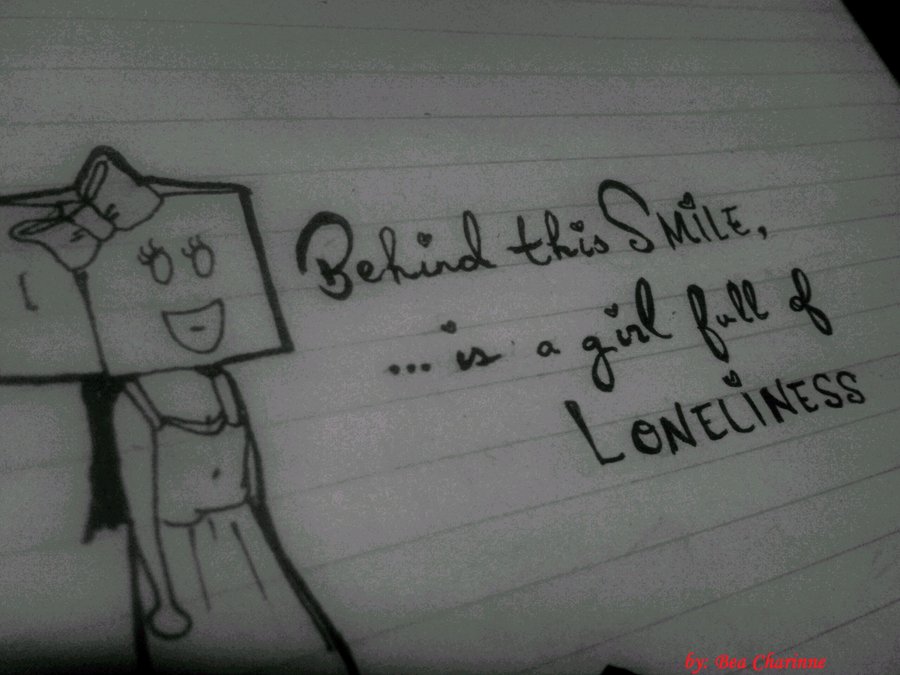 Behind this SMILE,
... is a girl full of
LONELINESS
by: Bea Charinne